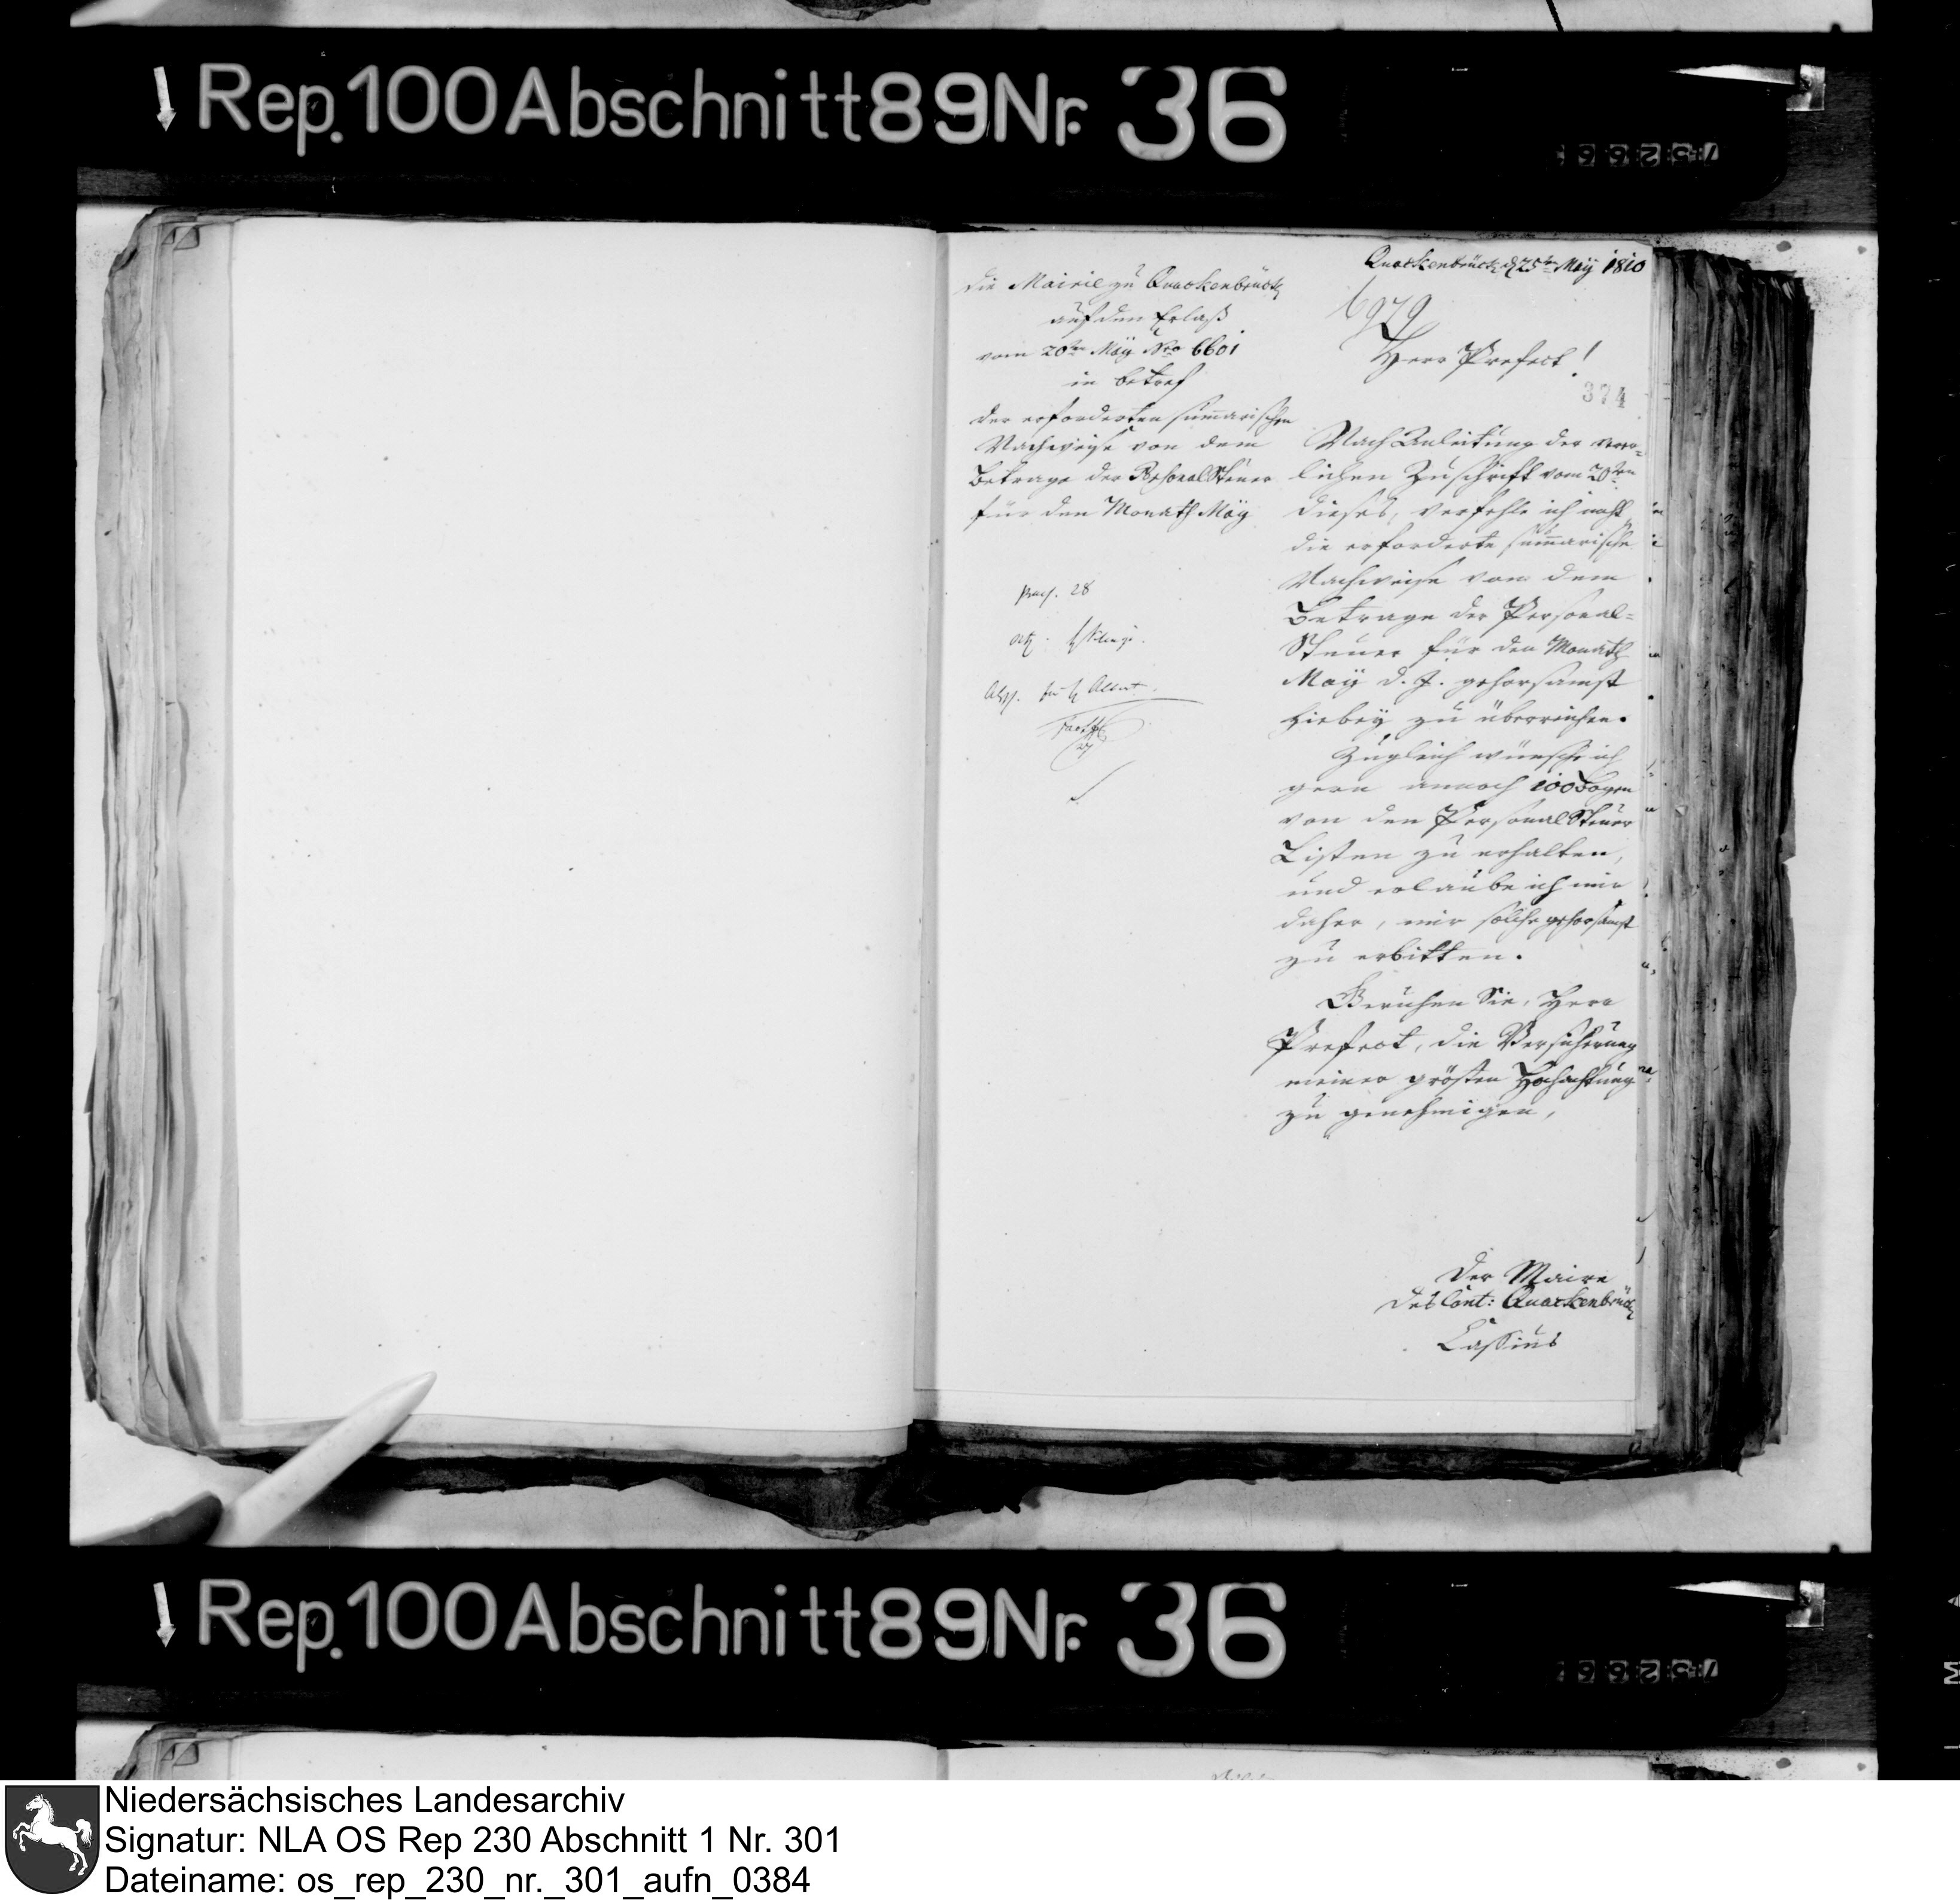 Rep. 100 Abschnitt 89 Nr. 36
Quackenbrück d 25ten Maÿ 1810
Die Mairie zu Quackenbrück
auf den Erlaß
vom 20ten Maÿ Nro 6601
in betref
der erforderten sum̄arischen
Nachweise von dem
Betrage der Personal Steuer
für den Monath Maÿ
praes. 28
6979
Herr Prefect!
374
Nach Anleitung der verer-
lichen Zuschrift vom 20ten
dieses, verfehle ich nicht
die erforderte sum̄arische
Nachweise von dem
Betrage der Personal-
Steuer für den Monath
Maÿ d. J. gehorsamst
hiebeÿ zu überreichen.
Zugleich wünsche ich
gern annoch 100 Bogen
von den Personal Steuer
Listen zu erhalten,
und erlaube ich mir
daher, mir solche gehorsamst
zu erbitten.
Geruhen Sie, Herr
Prefect, die Versicherung
meiner größten Hochachtung
zu genehmigen,
Der Maire
des Cant: Quackenbrück
Cassius
Rep. 100 Abschnitt 89 Nr. 36
Niedersächsisches Landesarchiv
Signatur: NLA OS Rep 230 Abschnitt 1 Nr. 301
Dateiname: os_rep_230_nr._301_aufn_0384